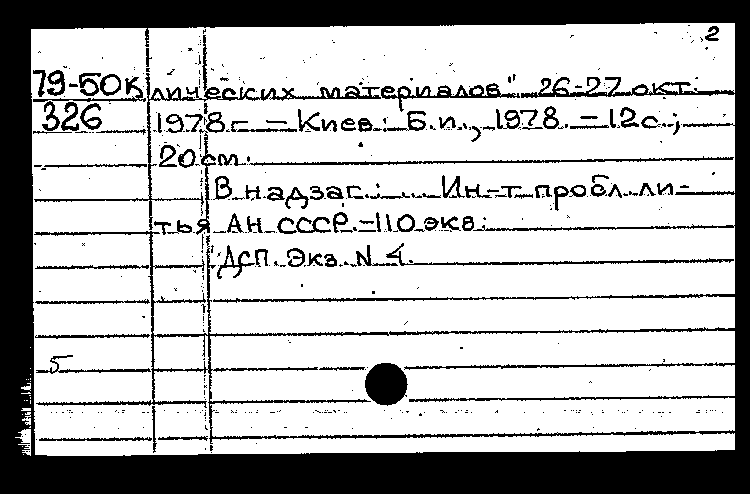 2
79-50к лических материалов" 26-27 окт.
326 1978г. - Киев: Б.и., 1978. - 12с.;
20см.
В надзаг.: ... Ин-т пробл. ли-
тья АН СССР. - 110 экз.
ДСП. Экз. N 4.
5